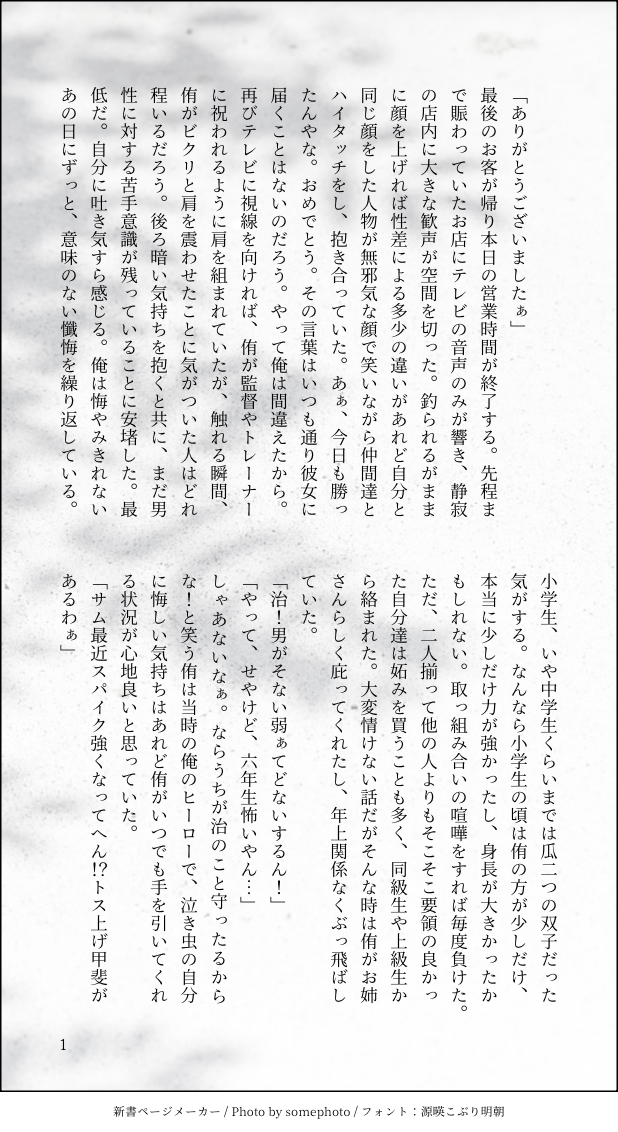 「ありがとうございましたぁ」
最後のお客が帰り本日の営業時間が終了する。先程ま
で賑わっていたお店にテレビの音声のみが響き、静寂
の店内に大きな歓声が空間を切った。釣られるがまま
に顔を上げれば性差による多少の違いがあれど自分と
同じ顔をした人物が無邪気な顔で笑いながら仲間達と
ハイタッチをし、抱き合っていた。あぁ、今日も勝っ
たんやな。おめでとう。その言葉はいつも通り彼女に
届くことはないのだろう。やって俺は間違えたから。
再びテレビに視線を向ければ、侑が監督やトレーナー
に祝われるように肩を組まれていたが、触れる瞬間、
侑がビクリと肩を震わせたことに気がついた人はどれ
程いるだろう。後ろ暗い気持ちを抱くと共に、まだ男
性に対する苦手意識が残っていることに安堵した。最
低だ。自分に吐き気すら感じる。俺は悔やみきれない
あの日にずっと、意味のない懺悔を繰り返している。
小学生、いや中学生くらいまでは瓜二つの双子だった
気がする。なんなら小学生の頃は侑の方が少しだけ、
本当に少しだけ力が強かったし、身長が大きかったか
もしれない。取っ組み合いの喧嘩をすれば毎度負けた。
ただ、二人揃って他の人よりもそこそこ要領の良かっ
た自分達は妬みを買うことも多く、同級生や上級生か
ら絡まれた。大変情けない話だがそんな時は侑がお姉
さんらしく庇ってくれたし、年上関係なくぶっ飛ばし
ていた。
「治！男がそない弱ぁてどないするん！」
「やって、せやけど、六年生怖いやん…」
しゃあないなぁ。ならうちが治のこと守ったるから
な！と笑う侑は当時の俺のヒーローで、泣き虫の自分
に悔しい気持ちはあれど侑がいつでも手を引いてくれ
る状況が心地良いと思っていた。
「サム最近スパイク強くなってへん!?トス上げ甲斐が
あるわぁ」
1
新書ページメーカー / Photo by somephoto / フォント：源暎こぶり明朝